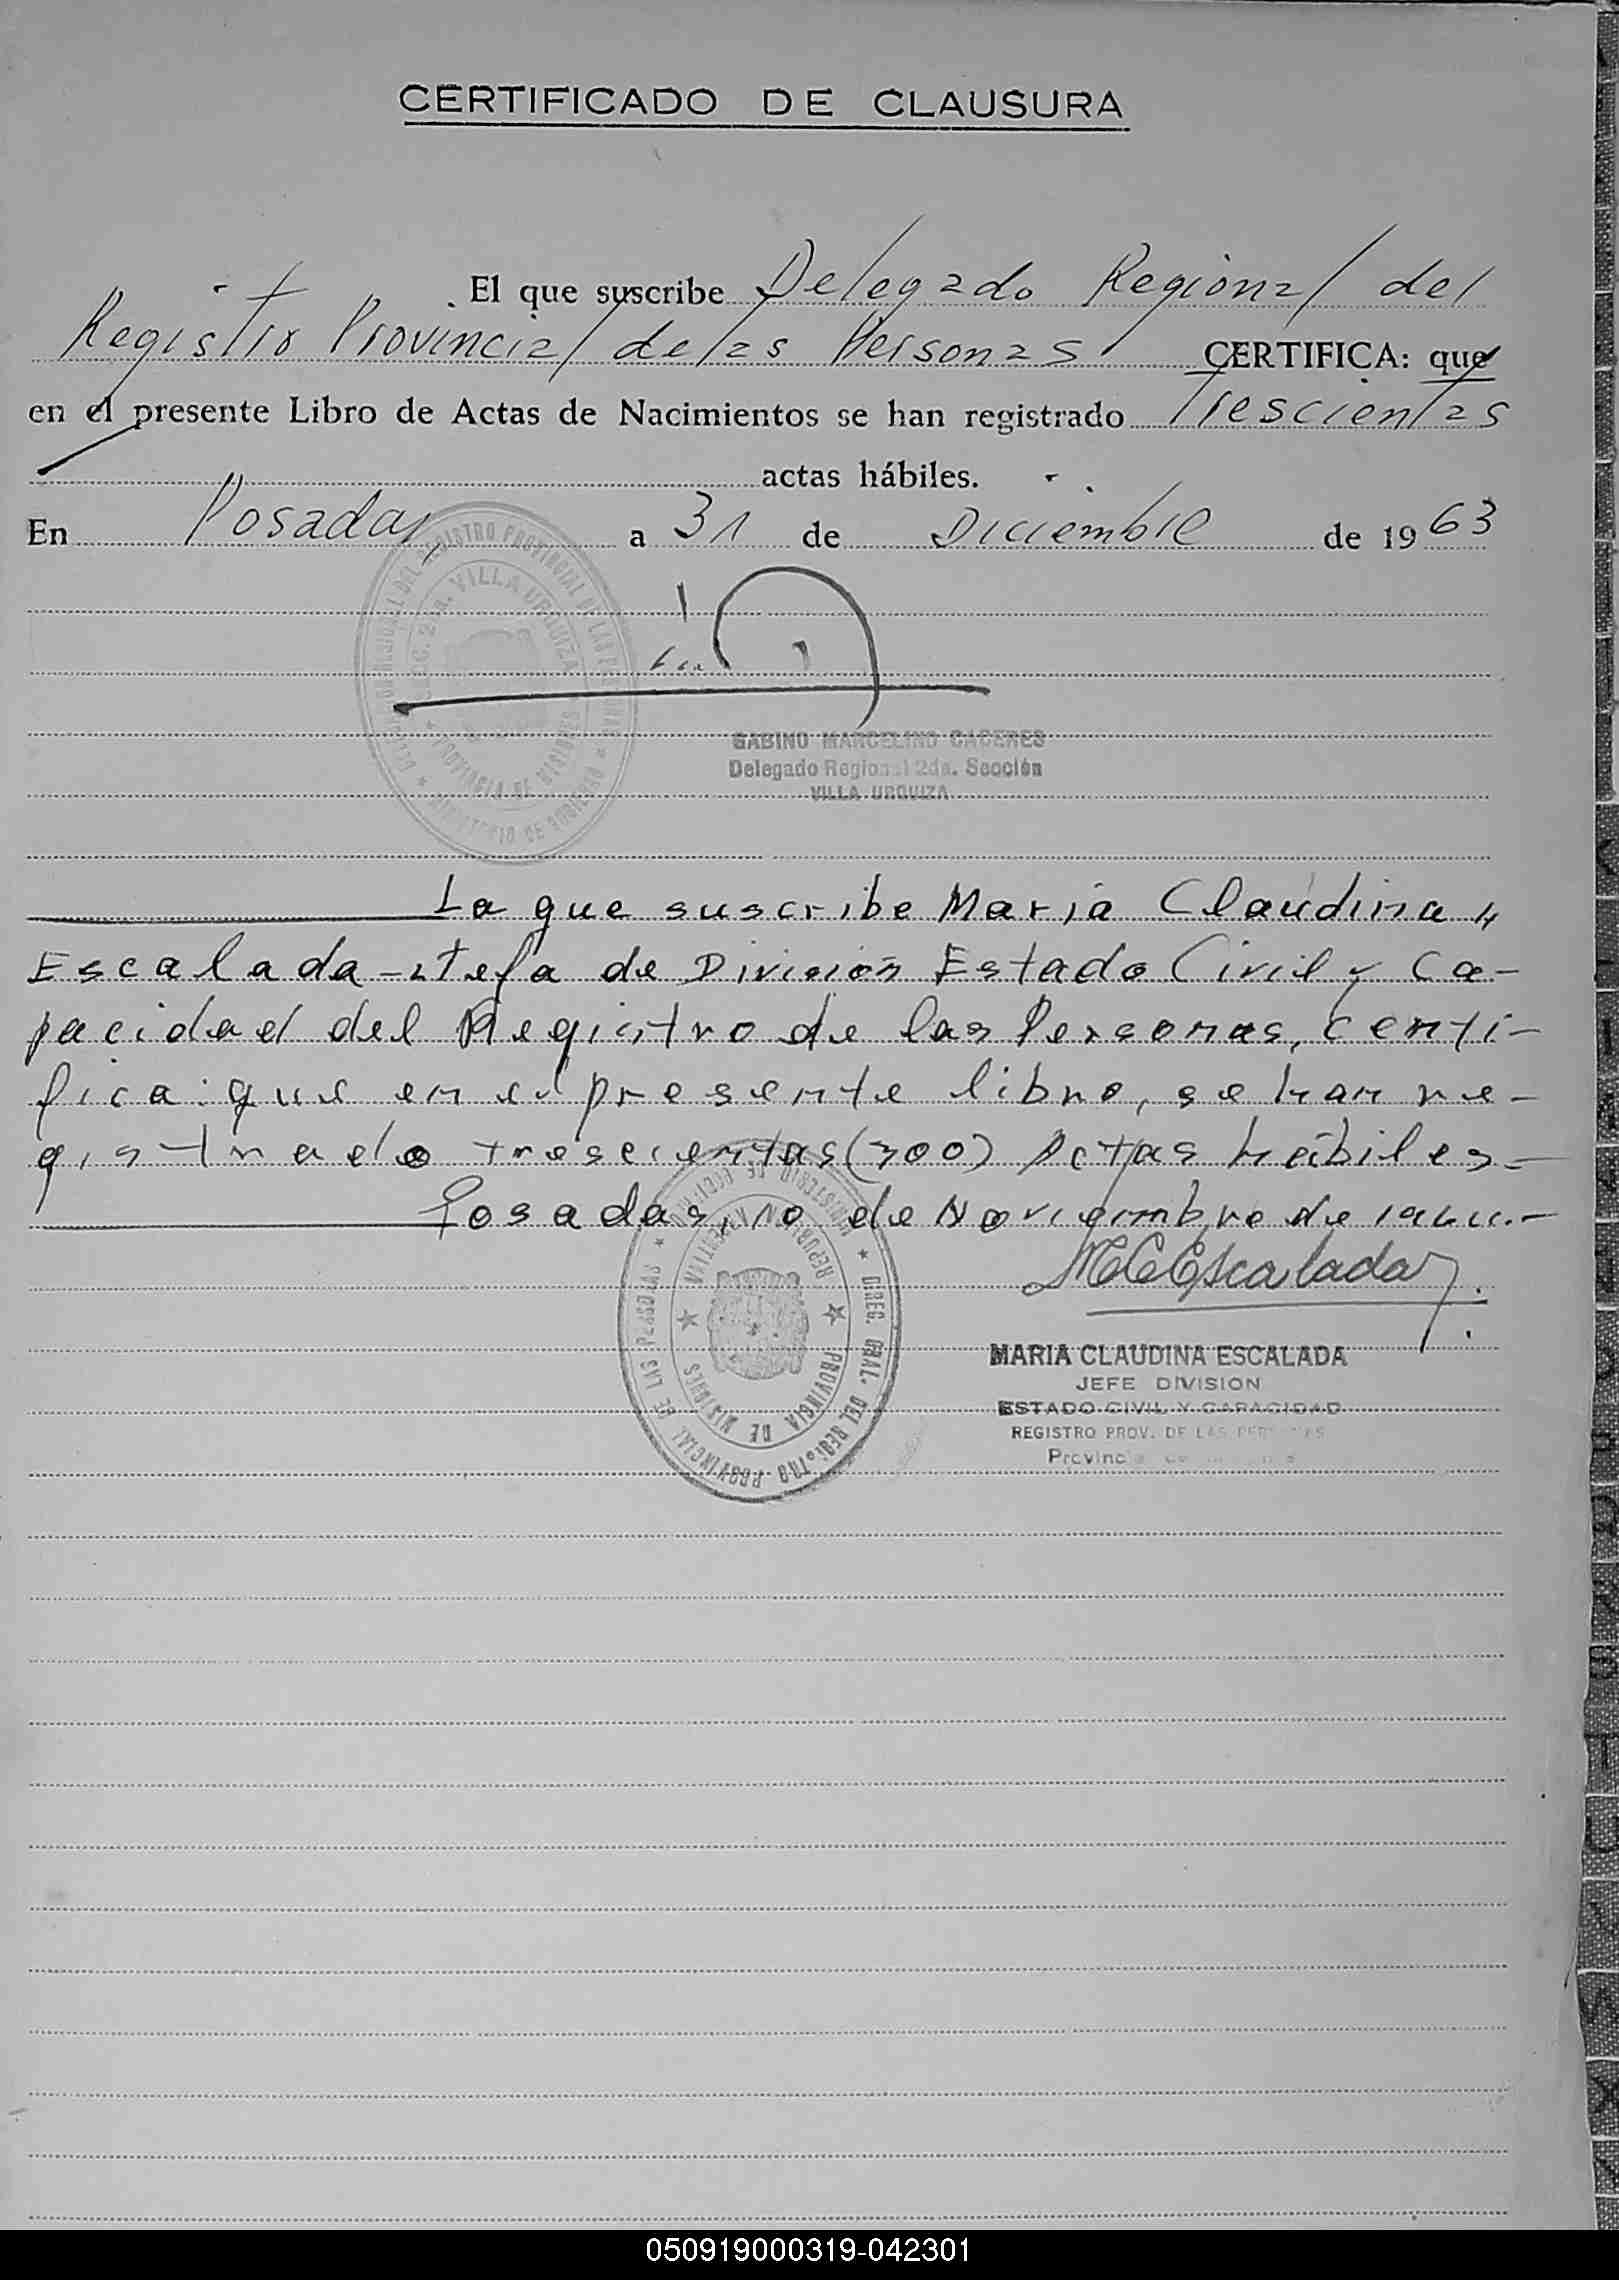 CERTIFICADO DE CLAUSURA
El que suscribe Delegado Regional del
Registro Provincial de las Personas CERTIFICA: que
en el presente Libro de Actas de Nacimientos se han registrado Trescientas
actas hábiles.
En Posadas, a 31 de Diciembre de 1963
DELEGACION REGIONAL DEL REGISTRO PROVINCIAL DE LAS PERSONAS
SECC. 2da. VILLA URQUIZA
PROVINCIA DE MISIONES
MINISTERIO DE GOBIERNO
GABINO MARCELINO CACERES
Delegado Regional 2da. Sección
VILLA URQUIZA
La que suscribe Maria Claudina
Escalada - Jefa de División Estado Civil y Ca-
pacidad del Registro de las Personas, certi-
fica: que en el presente libro, se han re-
gistrado trescientas (300) Actas hábiles -
Posadas, 10 de Noviembre de
MCEscalada
MINISTERIO DE GOBIERNO
DIREC. GRAL. DEL REGISTRO PROVINCIAL DE LAS PERSONAS
REPUBLICA ARGENTINA
PROVINCIA DE MISIONES
MARIA CLAUDINA ESCALADA
JEFE DIVISION
ESTADO CIVIL Y CAPACIDAD
REGISTRO PROV. DE LAS PERSONAS
Provincia
050919000319-042301